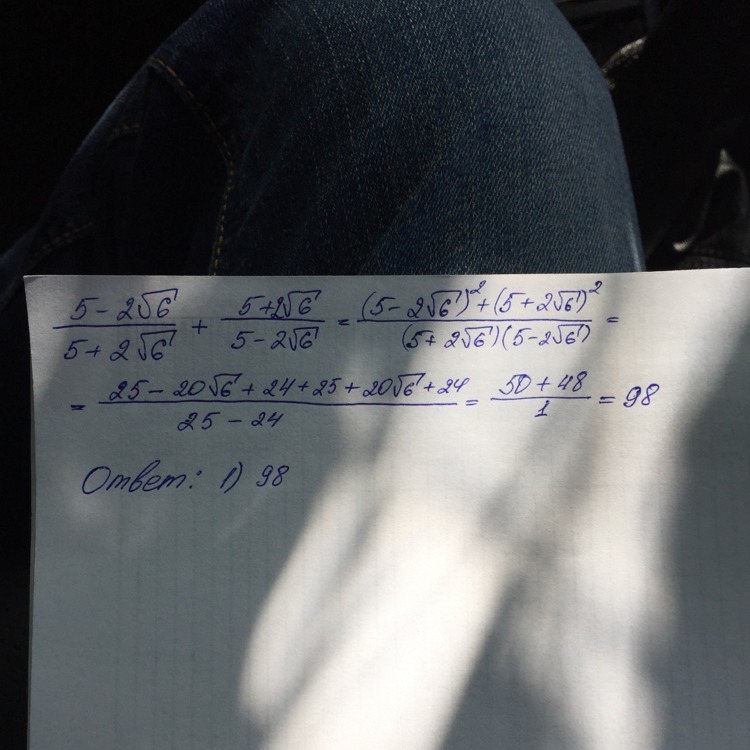 (5 - 2√6)/(5 + 2√6) + (5+2√6)/(5 - 2√6) = ((5 - 2√6)² + (5 + 2√6)²)/((5 + 2√6)(5 - 2√6)) =
= (25 - 20√6 + 24 + 25 + 20√6 + 24)/(25 - 24) = (50 + 48)/1 = 98
Ответ: 1) 98